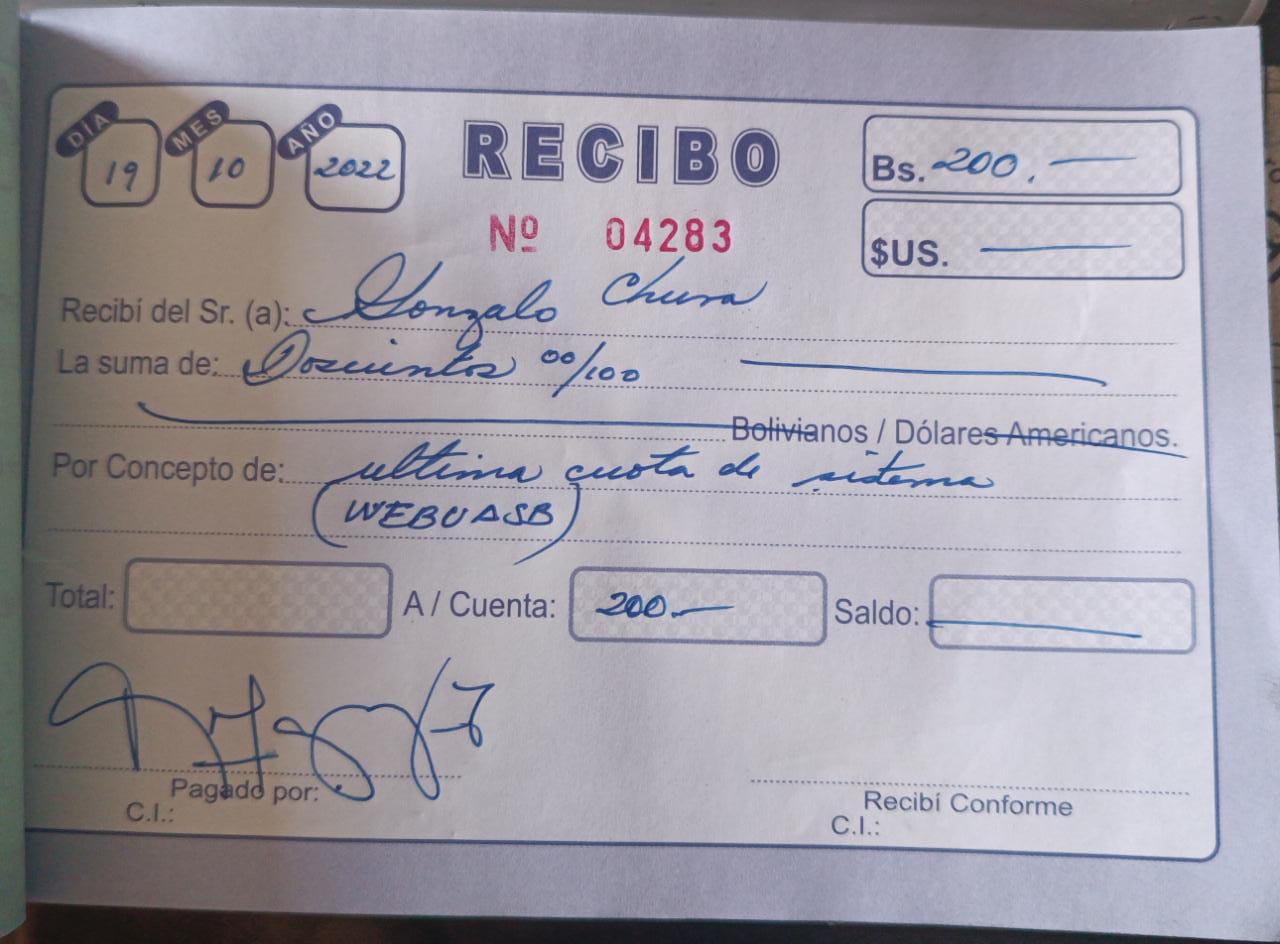 DÍA 19 MES 10 AÑO 2022
RECIBO
Nº 04283
Bs. 200.
$US.
Recibí del Sr. (a): Gonzalo Chura
La suma de: Doscientos 00/100
Bolivianos / Dólares Americanos.
Por Concepto de: ultima cuota de sistema
(WEBUASB)
Total: A / Cuenta: 200.— Saldo:
Pagado por: Recibí Conforme
C.I.: C.I.: